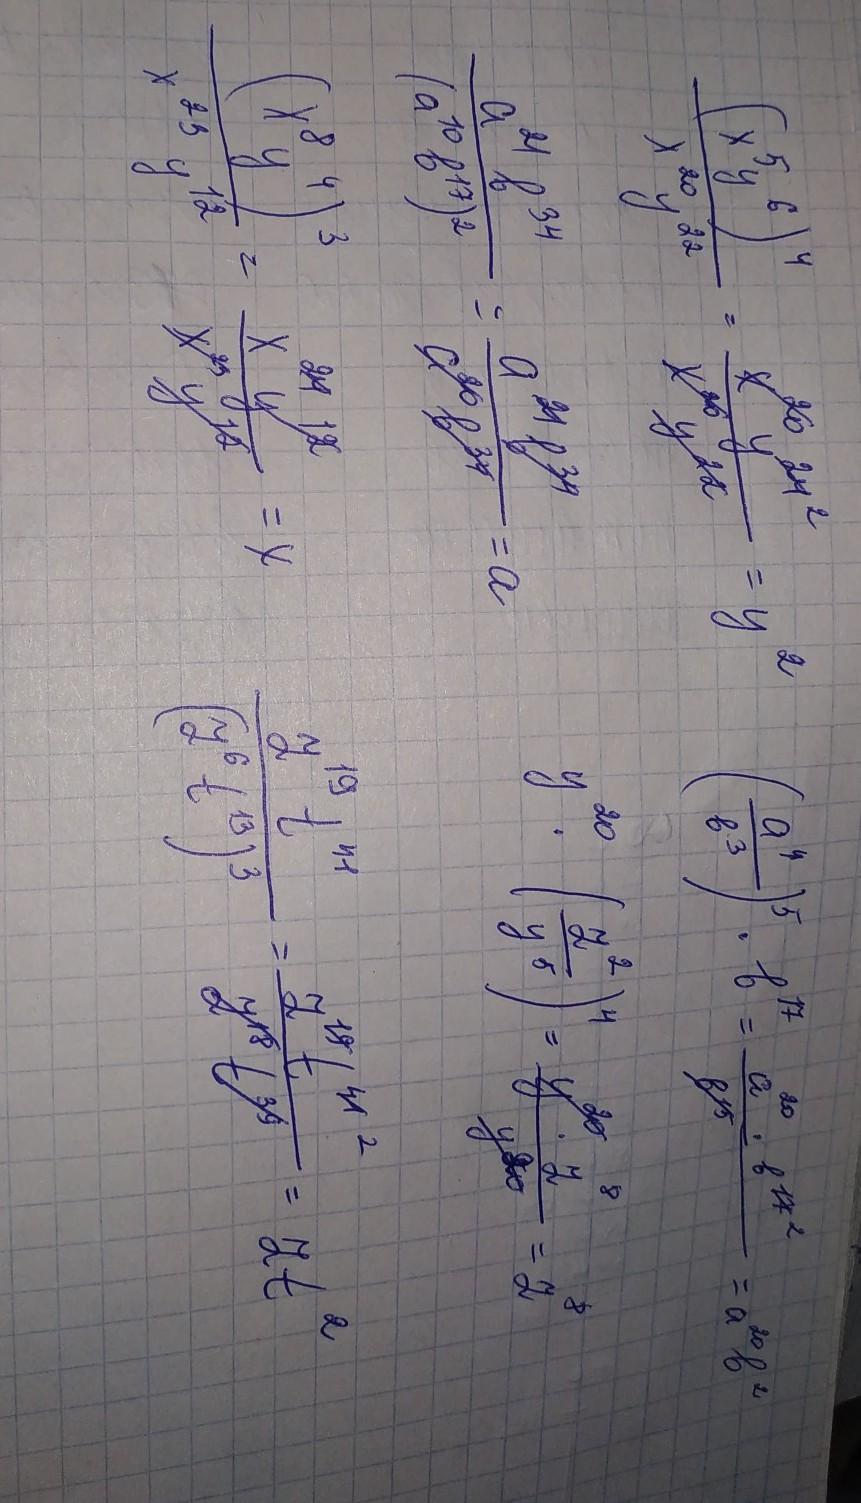 (x⁵y⁶)⁴ / x²⁰y²² = x²⁰y²⁴ ² / x²⁰y²² = y²
a²¹b³⁴ / (a¹⁰b¹⁷)² = a²¹b³⁴ / a²⁰b³⁴ = a
(x⁸y⁴)³ / x²³y¹² = x²⁴y¹² / x²³y¹² = x
(a⁴/b³)⁵ · b¹⁷ = a²⁰ · b¹⁷ ² / b¹⁵ = a²⁰b²
y²⁰ · (z²/y⁵)⁴ = y²⁰ · z⁸ / y²⁰ = z⁸
z¹⁹t⁴¹ / (z⁶t¹³)³ = z¹⁹t⁴¹ ² / z¹⁸t³⁹ = zt²